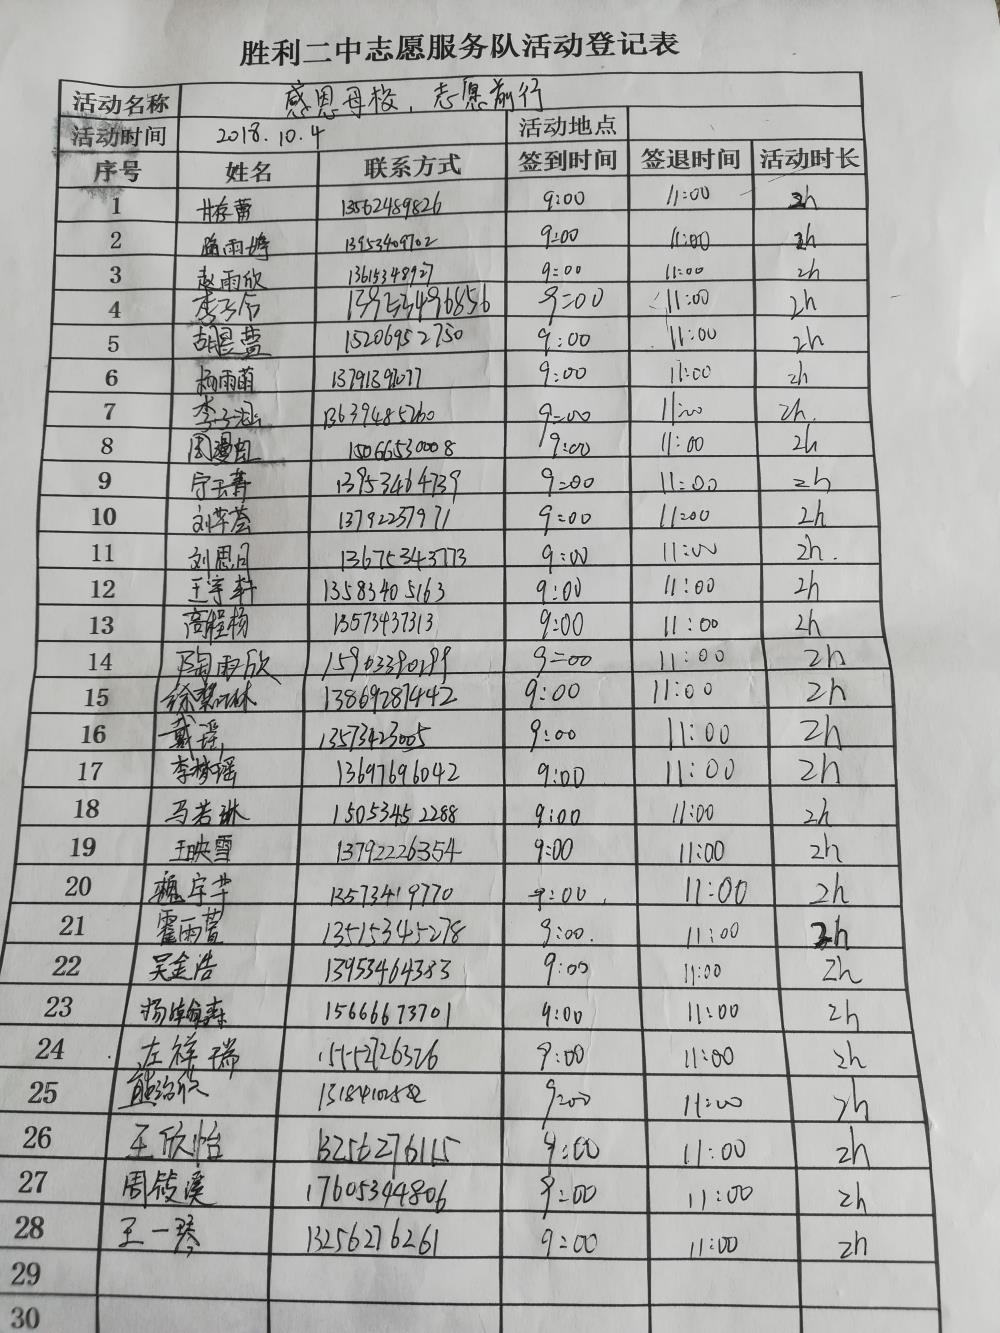 胜利二中志愿服务队活动登记表
活动名称 感恩母校，志愿前行
活动时间 2018.10.4 活动地点
序号 姓名 联系方式 签到时间 签退时间 活动时长
1 13562489826 9:00 11:00 2h
2 13953409702 9:00 11:00 2h
3 赵雨欣 13615348927 9:00 11:00 2h
4 9:00 11:00 2h
5 15206952750 9:00 11:00 2h
6 杨雨萌 9:00 11:00 2h
7 李子涵 13639485260 9:00 11:00 2h.
8 15066530008 9:00 11:00 2h
9 13953464739 9:00 11:00 2h
10 13792257971 9:00 11:00 2h
11 刘思同 13675343773 9:00 11:00 2h.
12 王宇轩 13583405163 9:00 11:00 2h
13 高程杨 13573437313 9:00 11:00 2h
14 陶雨欣 15963390199 9:00 11:00 2h
15 13869287442 9:00 11:00 2h
16 戴瑶 13573423005 9:00 11:00 2h
17 李梦瑶 13697696042 9:00 11:00 2h
18 马若琳 15053452288 9:00 11:00 2h
19 王映雪 13792226354 9:00 11:00 2h
20 13573419770 9:00 11:00 2h
21 霍雨萱 13515345278 9:00 11:00 2h
22 吴金浩 13953464383 9:00 11:00 2h
23 15666673701 9:00 11:00 2h
24 左祥瑞 9:00 11:00 2h
25 9:00 11:00 2h
26 王欣怡 13256276115 9:00 11:00 2h
27 周筱溪 17605344806 9:00 11:00 2h
28 王一琴 13256276261 9:00 11:00 2h
29
30